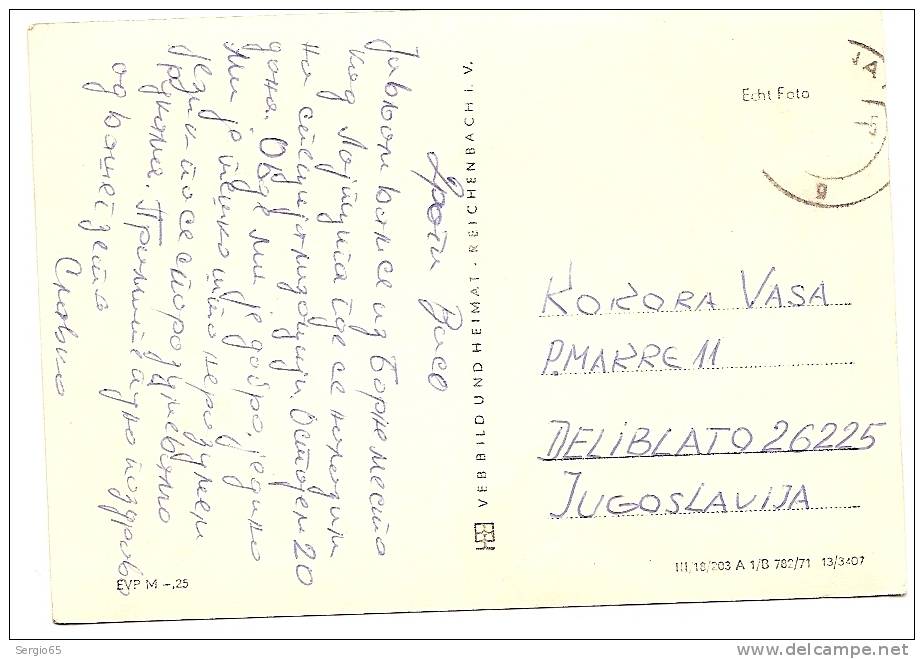 Драги Васо
Јављам вам се из Борне место
код Лајпцига где се налазим
на специјализацији. Остајем 20
дана. Овде ми је добро, једино
ми је тешко што не разумем
језик па се споразумевамо
рукама. Примите пуно поздрава
од вашег зета
Славко
VEB BILD UND HEIMAT · REICHENBACH I. V.
Echt Foto
KOKORA VASA
P.MAKRE 11
DELIBLATO 26225
JUGOSLAVIJA
III/18/203 A 1/B 782/71 13/3407
EVP M –,25
Sergio65
delcampe.net